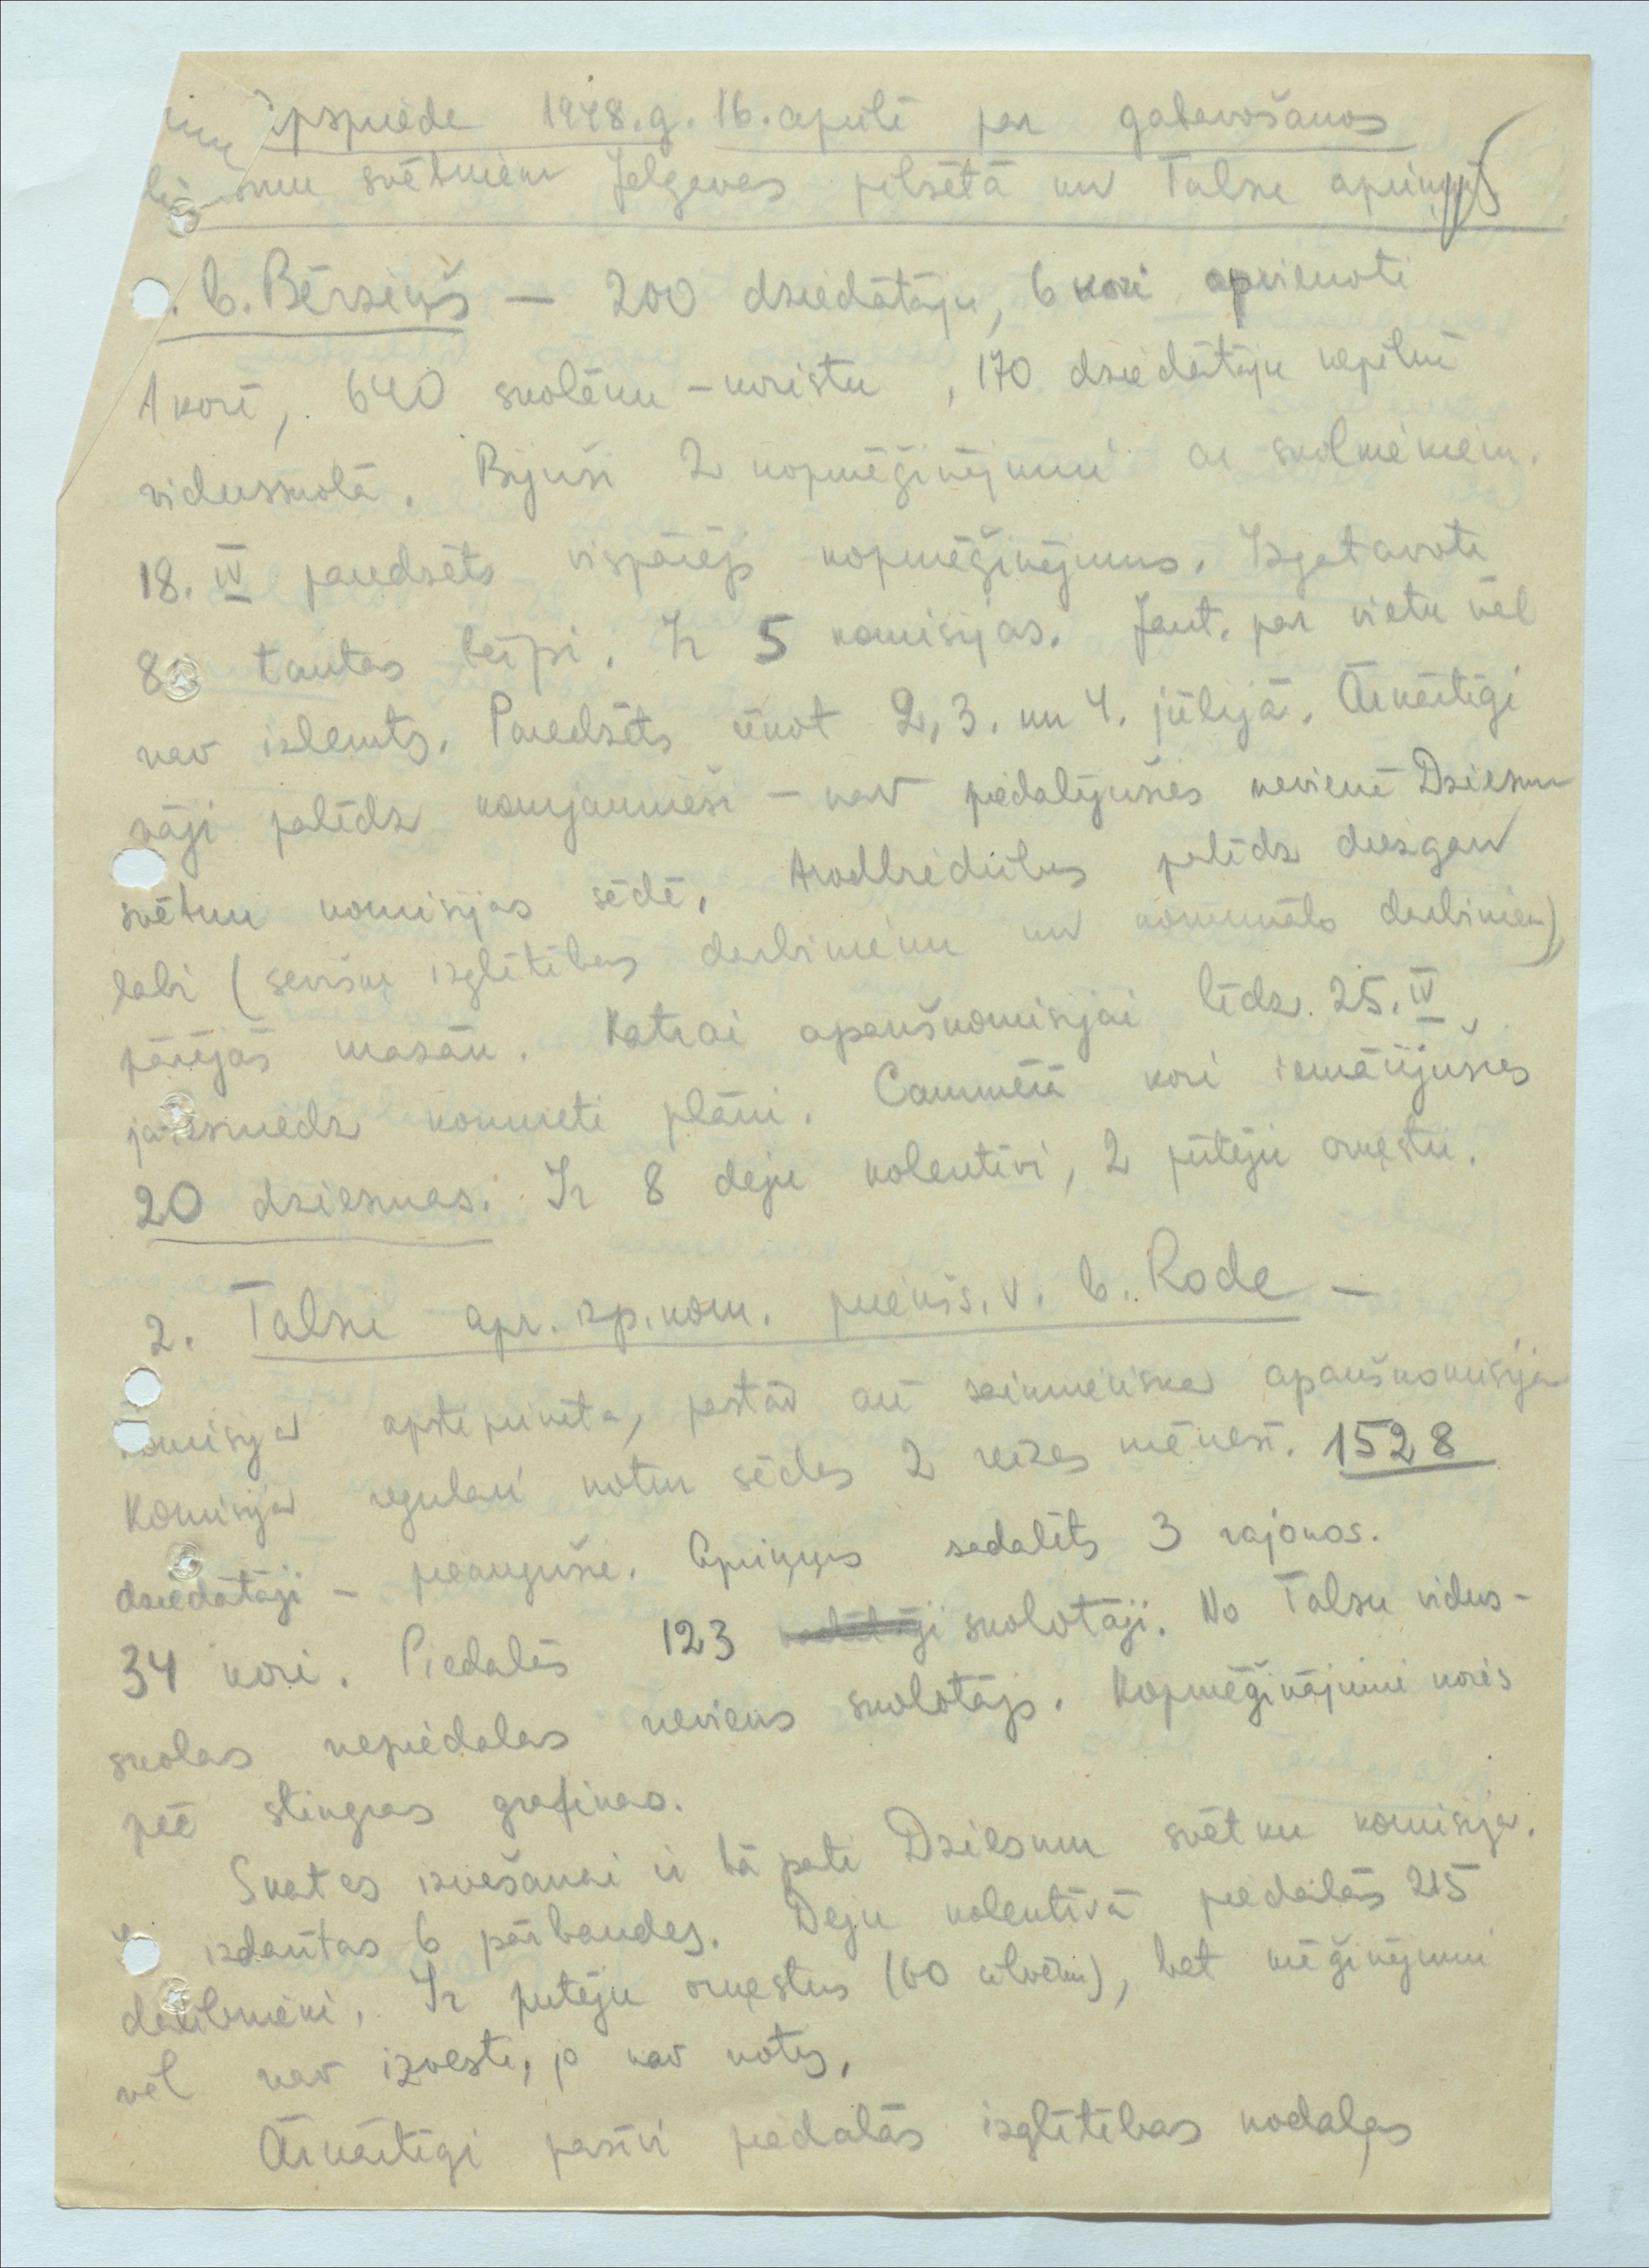 Apspriede 1948.g. 16. aprīlī par gatavošanos
svētkiem Jelgavas pilsētā un Talsu apriņķī
b. Bērziņš — 200 dziedātāju, 6 kori apvienoti
1 korī, 640 skolēnu - koristu, 170 dziedātāju nepilnā
vidusskolā. Bijuši 2 kopmēģinājumi ar skolniekiem.
18. IV paredzēts vispārējs kopmēģinājums. Izgatavoti
80 tautas tērpi. Ir 5 komisijas. Jaut. par vietu vēl
nav izlemts. Paredzēts rīkot 2, 3. un 4. jūlijā. Ārkārtīgi
vāji palīdz komjaunieši – nav piedalījušies nevienā Dziesmu
svētku komisijas sēdē. Arodbiedrības palīdz diezgan
labi (sevišķi izglītības darbinieku un komunālo darbiniek)
pārējās mazāk. Katrai apakškomisijai līdz 25. IV
jāiesniedz konkrēti plāni. Caurmērā kori iemācījušies
20 dziesmas. Ir 8 deju kolektīvi, 2 pūtēju orķestri.
2. Talsu apr. izp. kom. priekšs. v. b. Rode —
Komisija apstiprināta, pastāv arī saimnieciska apakškomisija
Komisija regulāri notur sēdes 2 reizes mēnesī. 1528
dziedātāji – pieaugušie. Apriņķis sadalīts 3 rajonos.
34 kori. Piedalās 123 skolotāji. No Talsu vidus-
skolas nepiedalās neviens skolotājs. Kopmēģinājumi koris
pēc stingras grafikas.
Skates izvešanai ir tā pati Dziesmu svētku komisija.
izdarītas 6 pārbaudes. Deju kolektīvā piedalās 215
dalībnieki. Ir pūtēju orķestris (60 cilvēki), bet mēģinājumi
vēl nav izvesti, jo nav notis.
Ārkārtīgi pasīvi piedalās izglītības nodaļas